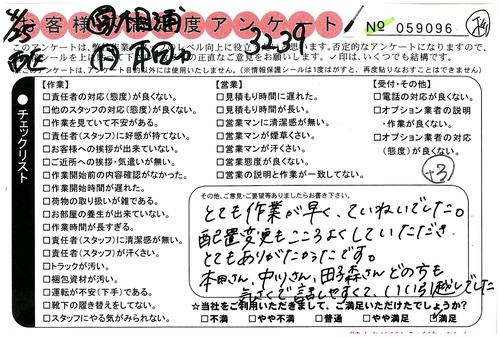 お客様満足度アンケート
No 059096
32-39
このアンケートは、弊社作業レベル向上に役立思います。否定的なアンケートになりますので、
シールを上の正直なご意見をお願いします。✓印は、いくつでも結構です。
アンケートは、アンケート目的以外には使用いたしません。(※情報保護シールは1度はがすと、再度貼りなおすことはできません)
●チェックリスト
【作業】
□責任者の対応(態度)が良くない。
□他のスタッフの対応(態度)が良くない。
□作業を見ていて不安がある。
□責任者(スタッフ)に好感が持てない。
□お客様への挨拶が出来ていない。
□ご近所への挨拶・気遣いが無い。
□作業開始前の内容確認がなかった。
□作業開始時間が遅れた。
□荷物の取り扱いが雑である。
□お部屋の養生が出来ていない。
□作業時間が長すぎる。
□責任者(スタッフ)に清潔感が無い。
□責任者(スタッフ)が汗くさい。
□トラックが汚い。
□梱包資材が汚い。
□運転が不安(下手)である。
□靴下の履き替えをしてない。
□スタッフにやる気がみられない。
【営業】
□見積もり時間に遅れた。
□見積もり時間が長い。
□営業マンに清潔感が無い。
□営業マンが煙草くさい。
□営業マンが汗くさい。
□営業態度が良くない。
□営業の説明と作業が一致してない。
【受付・その他】
□電話の対応が良くない。
□オプション業者の説明
・作業が良くない。
□オプション業者の対応
(態度)が良くない。
+3
その他、ご意見・ご要望等ありましたらお書き下さい。
とても作業が早く、ていねいでした。
配置変更もこころよくしていただき
とてもありがたかったです。
本田さん、中川さん、田子森さんどの方も
気さくで話しやすくて、いい引越しでした
☆当社をご利用いただきまして、ご満足いただけたでしょうか?
□不満 □やや不満 □普通 □やや満足 ☑満足